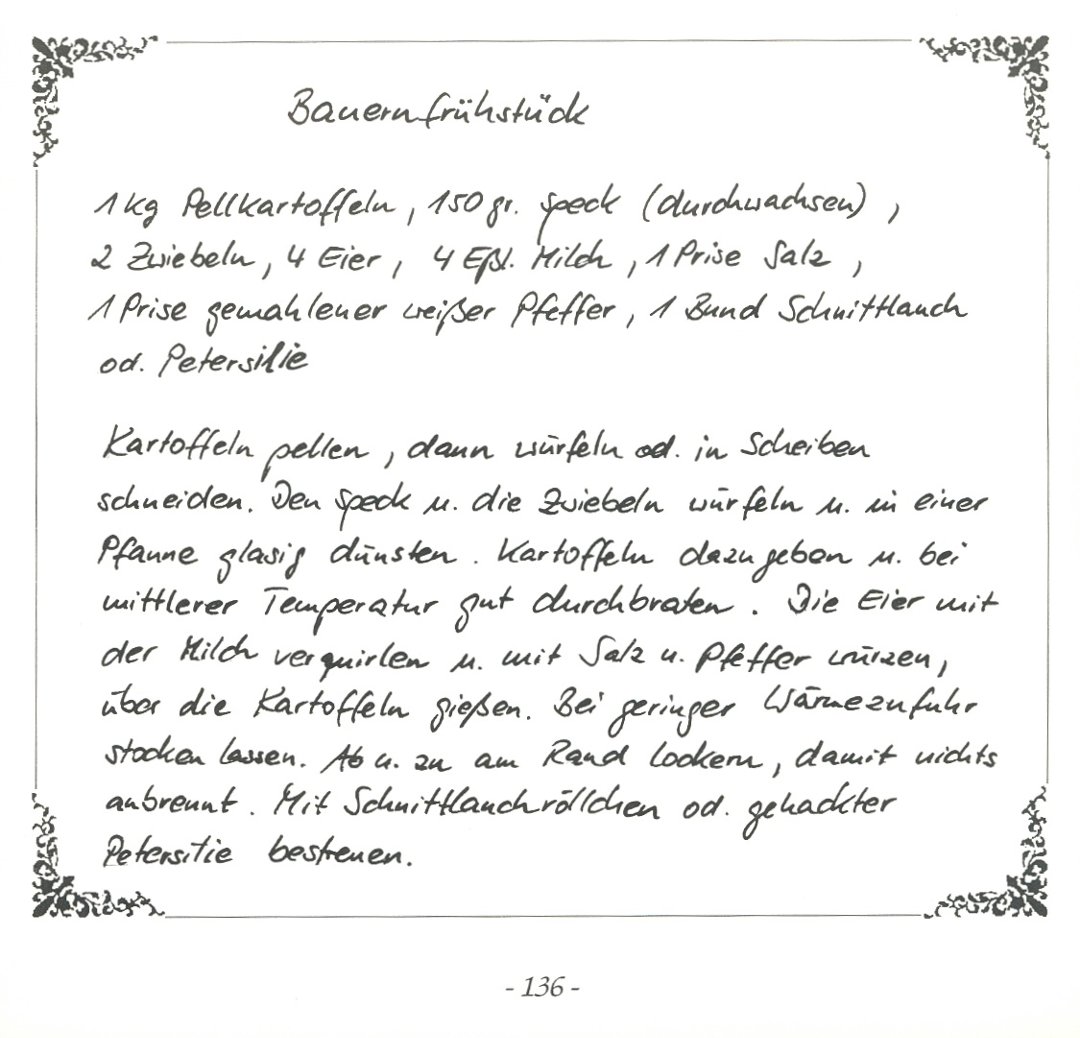 Bauernfrühstück
1 kg Pellkartoffeln, 150 gr. Speck (durchwachsen),
2 Zwiebeln, 4 Eier, 4 Eßl. Milch, 1 Prise Salz,
1 Prise gemahlener weißer Pfeffer, 1 Bund Schnittlauch
od. Petersilie
Kartoffeln pellen, dann würfeln od. in Scheiben
schneiden. Den Speck u. die Zwiebeln würfeln u. in einer
Pfanne glasig dünsten. Kartoffeln dazugeben u. bei
mittlerer Temperatur gut durchbraten. Die Eier mit
der Milch verquirlen u. mit Salz u. Pfeffer würzen,
über die Kartoffeln gießen. Bei geringer Wärmezufuhr
stocken lassen. Ab u. zu am Rand lockern, damit nichts
anbrennt. Mit Schnittlauchröllchen od. gehackter
Petersilie bestreuen.
- 136 -